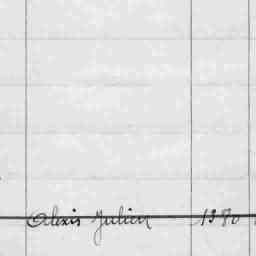 Alexis Julien 1370